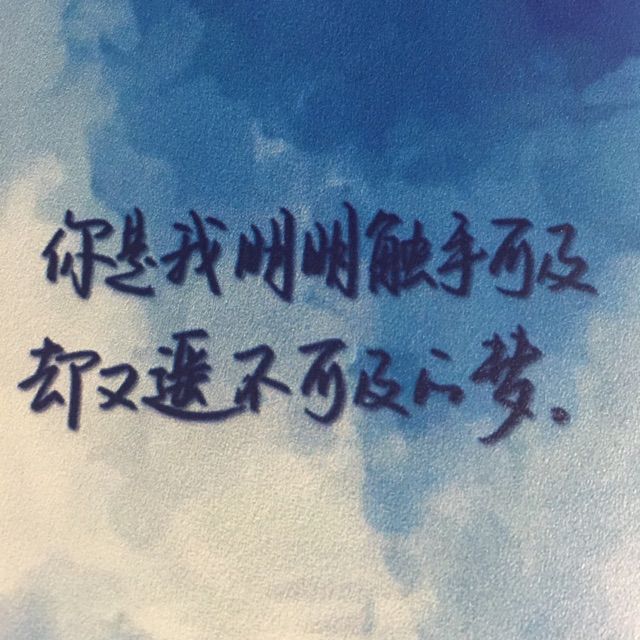 你是我明明触手可及
却又遥不可及的梦。